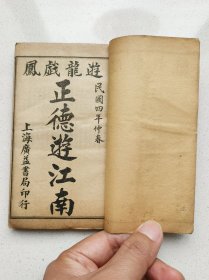 遊龍戲鳳
民國四年仲春
正德遊江南
上海廣益書局印行